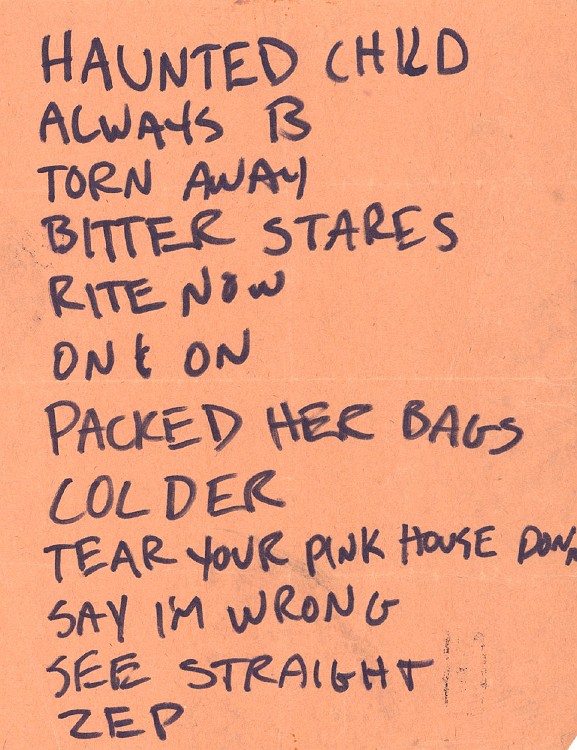 HAUNTED CHILD
ALWAYS B
TORN AWAY
BITTER STARES
RITE NOW
ON & ON
PACKED HER BAGS
COLDER
TEAR YOUR PINK HOUSE DOWN
SAY I'M WRONG
SEE STRAIGHT
ZEP